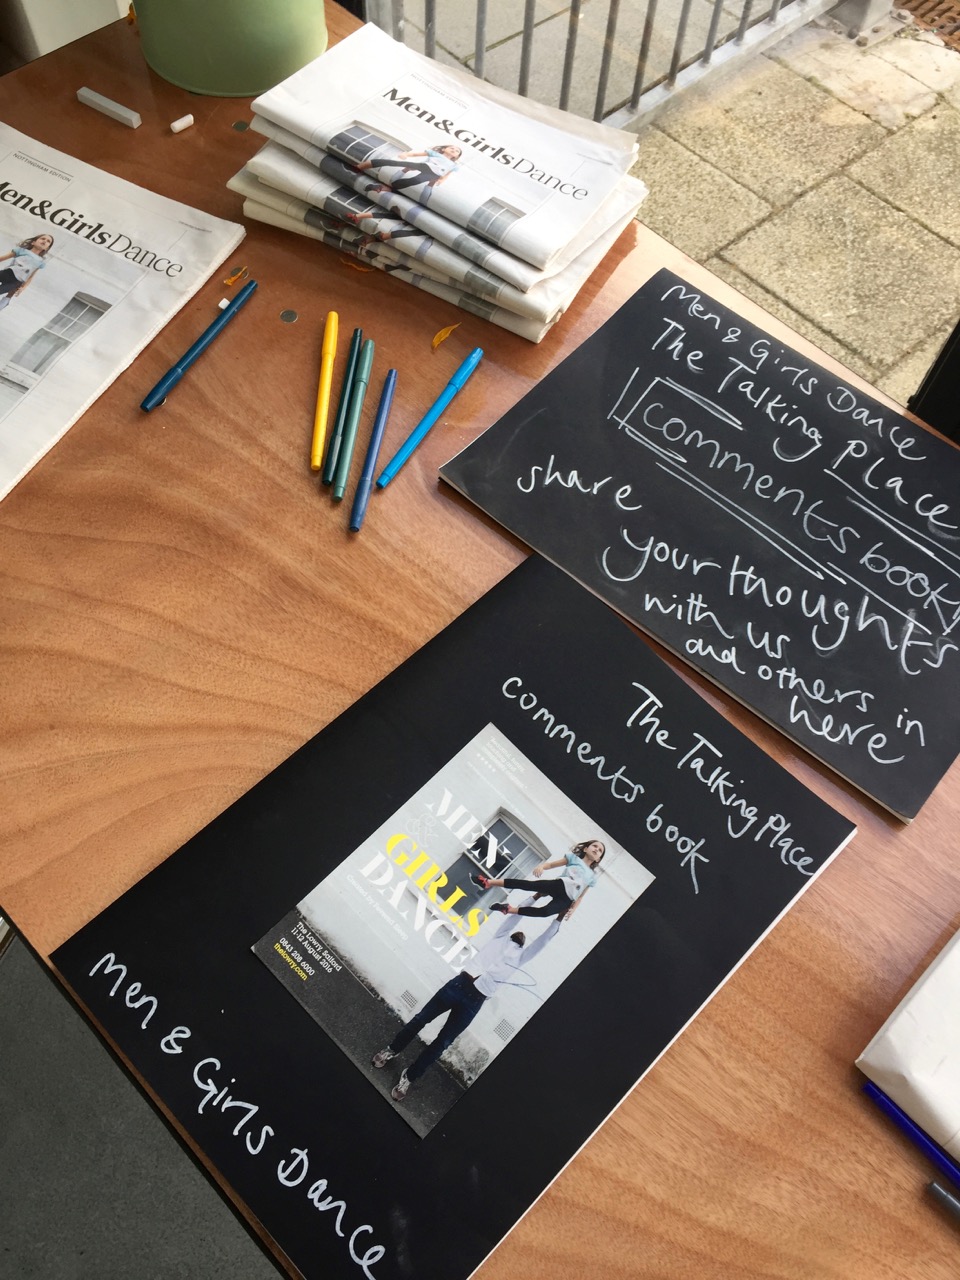 NOTTINGHAM EDITION
Men&GirlsDance
NOTTINGHAM EDITION
Men&GirlsDance
Men & Girls Dance
The Talking Place
comments book
share
your thoughts
with us
and others in
here
The Talking Place
comments book
MEN
&
GIRLS
DANCE
The Lowry, Salford
11-12 August 2016
0843 208 6000
thelowry.com
Men & Girls Dance